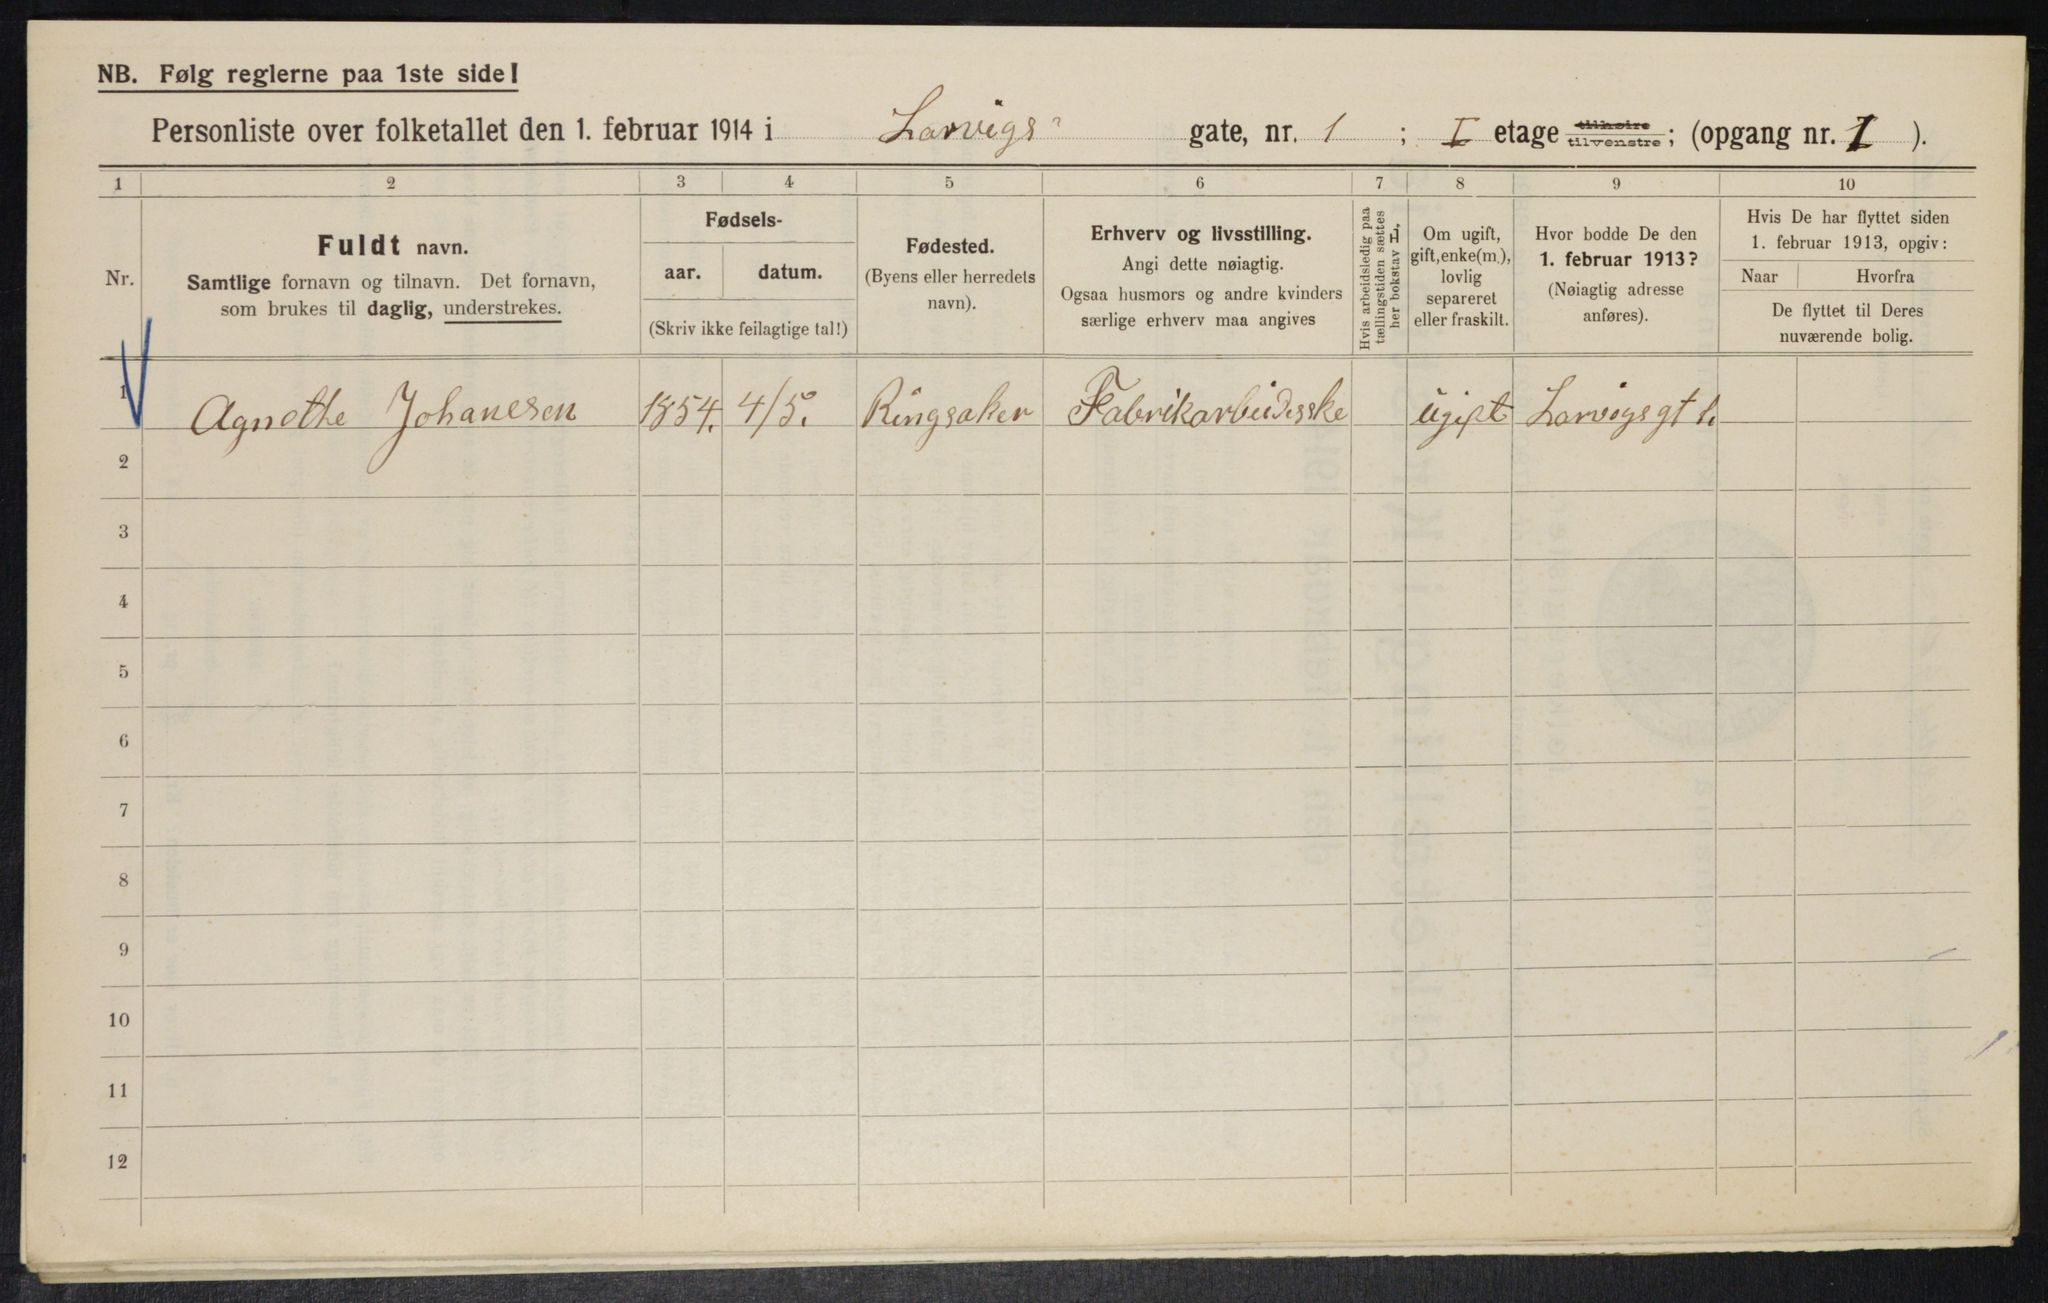 NB. Følg reglerne paa 1ste side!
Personliste over folketallet den 1. februar 1914 i Larvigs gate, nr. 1 ; I etage tilhøire tilvenstre; (opgang nr. I ).
1 2 3 4 5 6 7 8 9 10
Nr.
Fuldt navn.
Samtlige fornavn og tilnavn. Det fornavn,
som brukes til daglig, understrekes.
Fødsels-
aar. datum.
(Skriv ikke feilagtige tal!)
Fødested.
(Byens eller herredets
navn).
Erhverv og livsstilling.
Angi dette nøiagtig.
Ogsaa husmors og andre kvinders
særlige erhverv maa angives
Hvis arbeidsledig paa
tællingstiden sættes
her bokstav L.
Om ugift,
gift, enke(m.),
lovlig
separeret
eller fraskilt.
Hvor bodde De den
1. februar 1913?
(Nøiagtig adresse
anføres).
Hvis De har flyttet siden
1. februar 1913, opgiv:
Naar Hvorfra
De flyttet til Deres
nuværende bolig.
1 Agnethe Johanesen 1854. 4/5. Ringsaker Fabrikarbeideske ugift Larvigsgt 1.
2
3
4
5
6
7
8
9
10
11
12